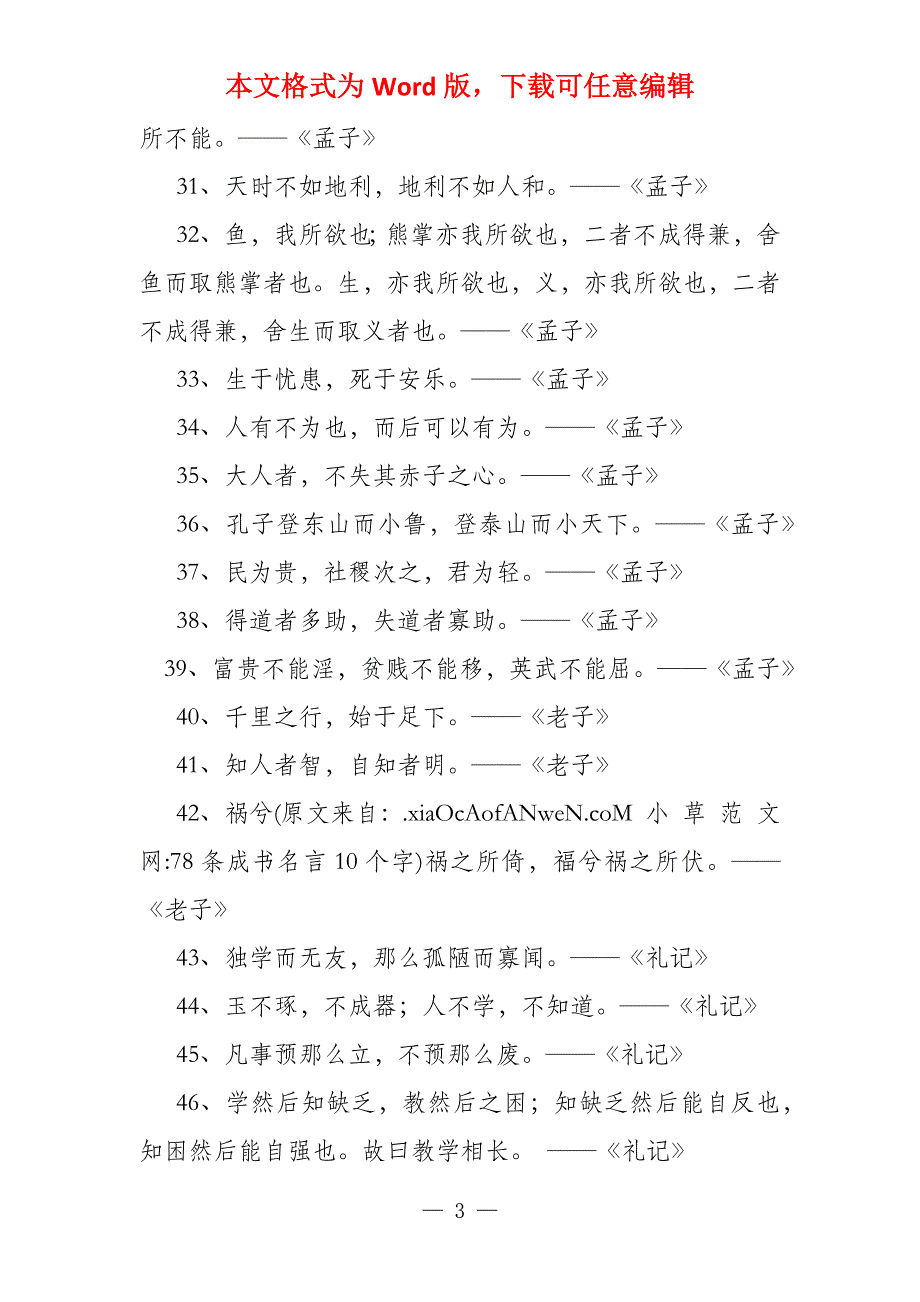 本文格式为 Word 版，下载可任意编辑
所不能。——《孟子》
31、天时不如地利，地利不如人和。——《孟子》
32、鱼，我所欲也；熊掌亦我所欲也，二者不成得兼，舍
鱼而取熊掌者也。生，亦我所欲也，义，亦我所欲也，二者
不成得兼，舍生而取义者也。——《孟子》
33、生于忧患，死于安乐。——《孟子》
34、人有不为也，而后可以有为。——《孟子》
35、大人者，不失其赤子之心。——《孟子》
36、孔子登东山而小鲁，登泰山而小天下。——《孟子》
37、民为贵，社稷次之，君为轻。——《孟子》
38、得道者多助，失道者寡助。——《孟子》
39、富贵不能淫，贫贱不能移，英武不能屈。——《孟子》
40、千里之行，始于足下。——《老子》
41、知人者智，自知者明。——《老子》
42、祸兮(原文来自：.xiaOcAofANweN.coM 小 草 范 文
网:78 条成书名言 10 个字)祸之所倚，福兮祸之所伏。——
《老子》
43、独学而无友，那么孤陋而寡闻。——《礼记》
44、玉不琢，不成器；人不学，不知道。——《礼记》
45、凡事预那么立，不预那么废。——《礼记》
46、学然后知缺乏，教然后之困；知缺乏然后能自反也，
知困然后能自强也。故曰教学相长。 ——《礼记》
— 3 —